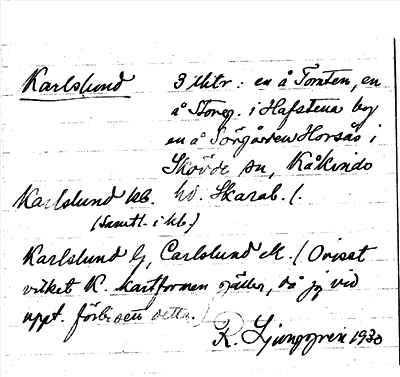 Karlslund 3 lhtr: en å Tomten, en
å Storeg. i Hafstena by
en å Sörgården Horsås i
Skövde sn, Kåkinds
Karlslund kb. hd. Skarab. l.
(Samtl. i kb.)
Karlslund G, Carlslund EK. (Ovisst
vilket K. kartformen gäller, då jg vid
uppt. förbisett detta.)
R. Ljunggren 1930